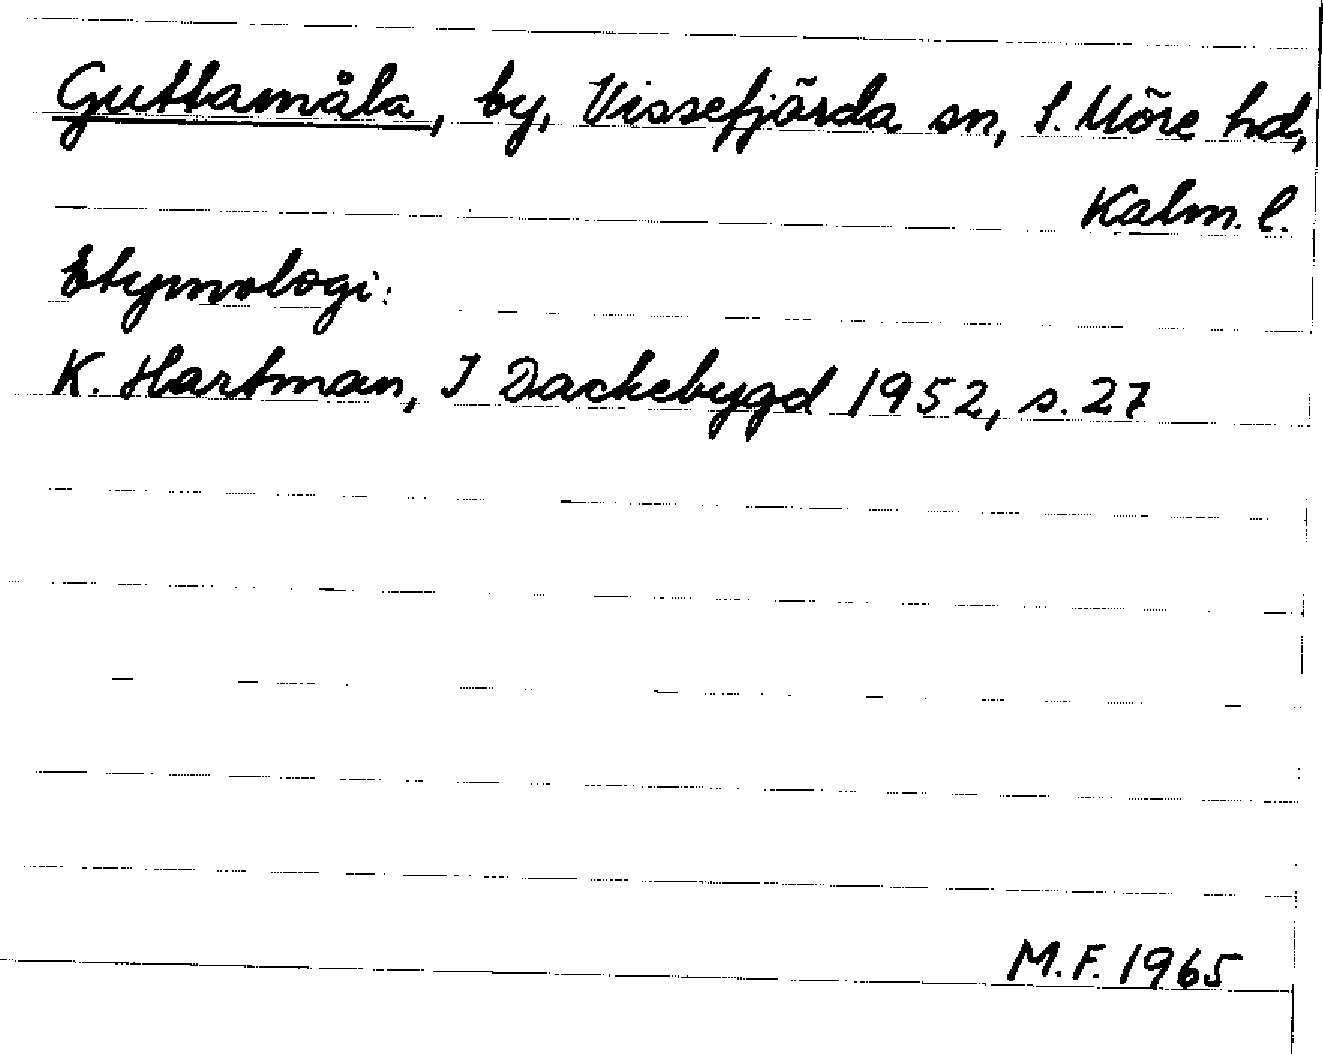 Guttamåla, by, Vissefjärda sn, S. Möre hd,
Kalm. l.
Etymologi:
K. Hartman, I Dackebygd 1952, s. 27
M.F. 1965